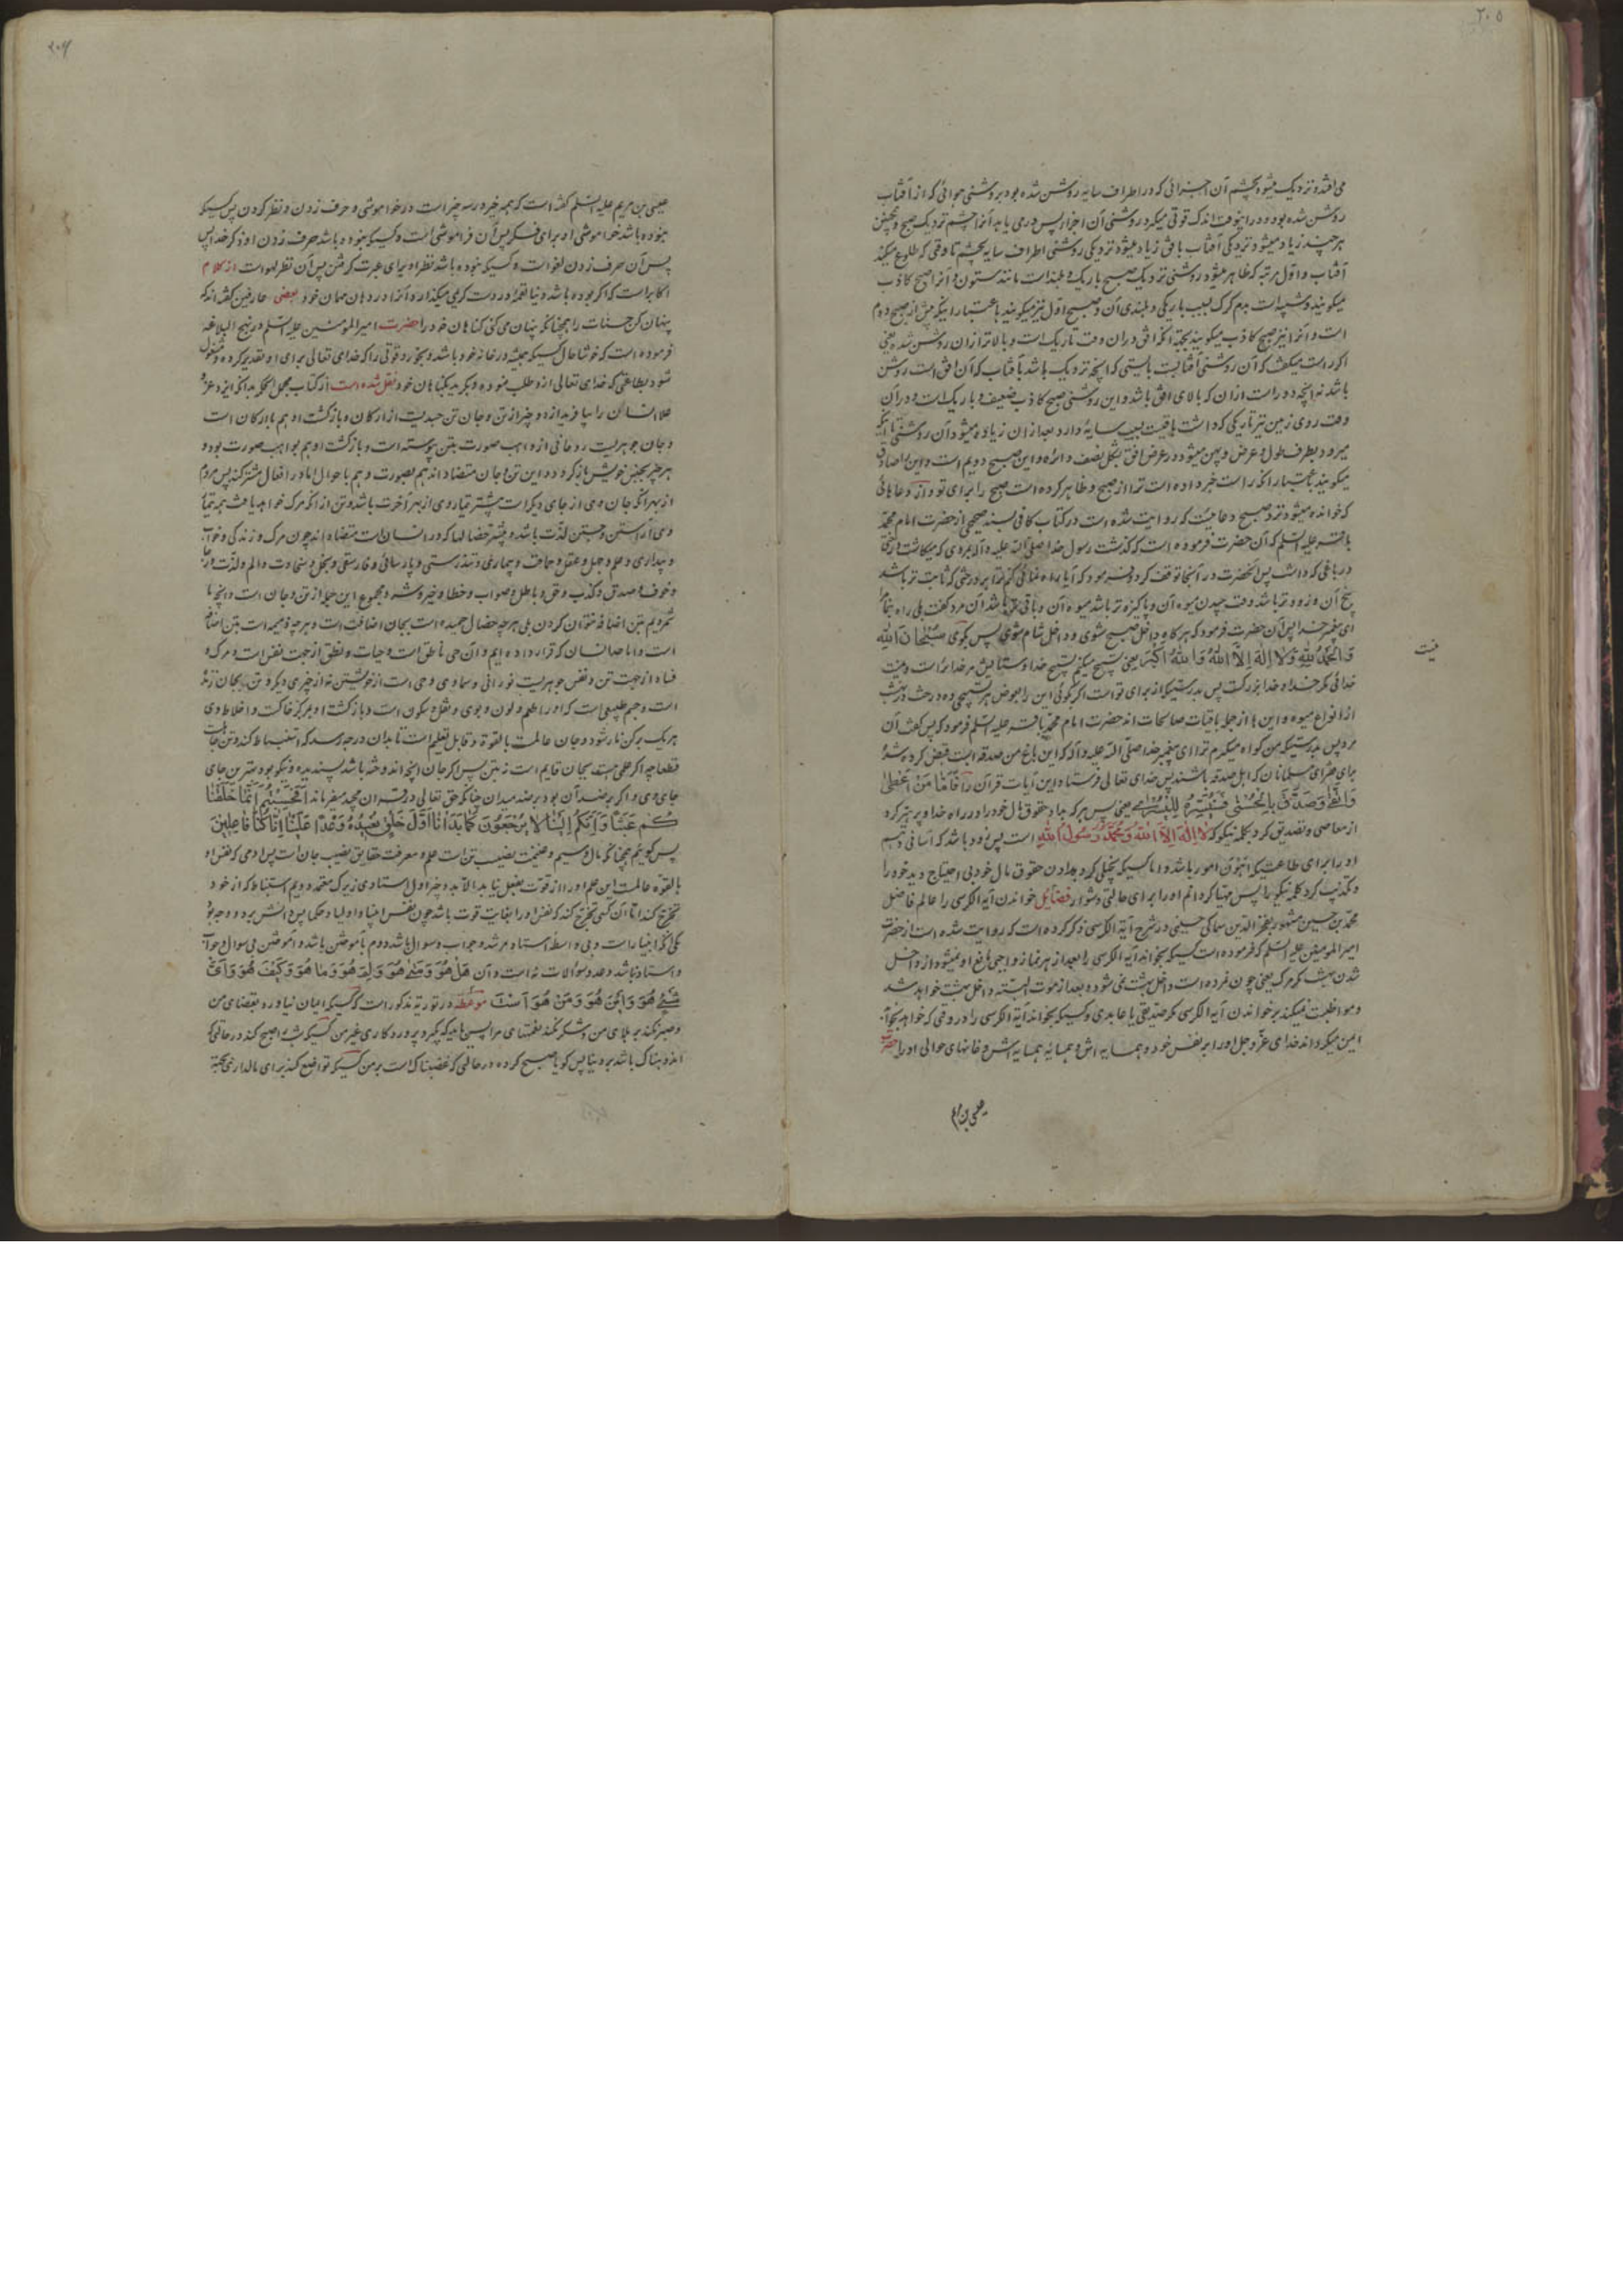 ۲۰۵
می افتد و نزدیک میشود بچشم آن اجزائی که در اطراف سایه روشن شده بود بروشنی هوائی که از آفتاب
روشن شده بود و در اینوقت اندک قوتی میکرد روشنی آن اجزا پس دمی باید آنرا چشم نزدیک صبح و همچنین
هر چند زیاد میشود نزدیکی آفتاب بافق زیاد میشود نزدیکی روشنی اطراف سایه بچشم تا وقتی که طلوع میکند
آفتاب و اول مرتبه که ظاهر میشود روشنی نزدیک صبح باریک و بلند است مانند ستون و آنرا صبح کاذب
میگویند و شبیه است بدم گرگ بسبب باریکی و بلندی آن و صبح اول نیز میگویند باعتبار اینکه پیش از صبح دوم
است و آنرا نیز صبح کاذب میگویند بجهت آنکه افق در آن وقت تاریک است و بالاتر از آن روشن شده یعنی
اگر راست میگفت که آن روشنی آفتابست بایستی که آنچه نزدیک باشد بآفتاب که آن افق است روشن
باشد نه آنچه دور است از آن که بالای افق باشد و این روشنی صبح کاذب ضعیف و باریک است و در آن
وقت روی زمین نیز تاریکی که داشت باقیست بسبب سایه دارد بعد از آن زیاده میشود آن روشنی تا اینکه
میرود بطرف طول و عرض و پهن میشود در عرض افق بشکل نصف دائره و این صبح دویم است و این را صادق
میگویند باعتبار آنکه راست خبر داده است ترا از صبح و ظاهر کرده است صبح را برای تو و از دعاهائی
که خوانده میشود نزد صبح دعائیست که روایت شده است در کتاب کافی بسند صحیح از حضرت امام محمد
باقر علیه السلم که آن حضرت فرموده است که گذشت رسول خدا صلی الله علیه و آله بمردی که میکاشت درختی
در باغی که داشت پس آنحضرت در آنجا توقف کرد و فرمود که آیا راه نمائی کنم ترا بر درختی که ثابت تر باشد
بیخ آن و زودتر باشد وقت چیدن میوه آن و پاکیزه تر باشد میوه آن و باقی تر باشد آن مرد گفت بلی راه بنما مرا
ای پیغمبر خدا پس آن حضرت فرمود که هر گاه داخل صبح شوی و داخل شام شوی پس بگوی سُبْحَانَ اللّهِ
وَ الْحَمْدُ لِلّهِ وَ لَا اِلٰهَ اِلَّا اللّهُ وَ اللّهُ اَكْبَر یعنی تسبیح میکنم تسبیح خدا و ستایش مر خدا را است و نیست
نیست
خدائی مگر خدا و خدا بزرگست پس بدرستیکه از برای تو است اگر بگوئی این را بعوض هر تسبیحی ده درخت در بهشت
از انواع میوه و این ها از جمله باقیات صالحات اند حضرت امام محمد باقر علیه السلم فرمود که پس گفت آن
مرد پس بدرستیکه من گواه میگیرم ترا ای پیغمبر خدا صلی الله علیه و آله که این باغ من صدقه ایست قبض کرده شده
برای فقرای مسلمانان که اهل صدقه باشند پس خدای تعالی فرستاد این آیات قرآن را فَاَمّا مَنْ اَعْطیٰ
وَ اتَّقیٰ وَ صَدَّقَ بِالْحُسْنی فَسَنُیَسِّرُهُ لِلْیُسْریٰ یعنی پس هر که بداد حقوق مال خود را در راه خدا و پرهیز کرد
از معاصی و تصدیق کرد بکلمه نیکو که لَا اِلٰهَ اِلَّا اللّهُ وَ مُحَمَّدٌ رَسُولُ اللّهِ است پس زود باشد که آسانی دهیم
او را برای طاعت که اینون امور باشد و اما کسیکه بخیلی کرد بدادن حقوق مال خود بی احتیاج دید خود را
و تکذیب کرد کلمه نیکو را پس مهیا کردانیم او را برای حالتی دشوار فضائل خواندن آیة الکرسی را عالم فاضل
محمد بن حسین مشهور بفخرالدین سماکی حسینی در شرح آیة الکرسی ذکر کرده است که روایت شده است از حضرت
امیر المومنین علیه السلم که فرموده است کسیکه بخواند آیة الکرسی را بعد از هر نماز واجبی مانع او نمیشود از داخل
شدن بهشت مگر مرگ یعنی چون نمرده است داخل بهشت نمی شود و بعد از موت البته داخل بهشت خواهد شد
و مواظبت نمیکند بر خواندن آیة الکرسی مگر صدیقی یا عابدی و کسیکه بخواند آیة الکرسی را در وقتی که خواهد بخوابد
ایمن میگرداند خدای عز و جل او را بر نفس خود و همسایه اش و همسایه همسایه اش و خانهای حوالی او را حضرت
عیسی بن مریم
۲۰۶
عیسی بن مریم علیه السلم گفته است که همه خیر در سه چیز است در خاموشی و حرف زدن و نظر کردن پس کسیکه
نبوده باشد خواموشی او برای فکر پس آن فراموشی است و کسیکه نبوده باشد حرف زدن او ذکر خدا پس
پس آن حرف زدن لغو است و کسیکه نبوده باشد نظر او برای عبرت گرفتن پس آن نظر لهو است از کلام
اکابر است که اگر بوده باشد دنیا لقمه در دست کریمی میگذارد آنرا در دهان مهمان خود بعضی عارفین گفته اند که
پنهان کن حسنات را همچنانکه پنهان می کنی گناهان خود را حضرت امیر المومنین علیه السلم در نهج البلاغه
فرموده است که خوشا حال کسیکه همیشه در خانه خود باشد و بخورد قوتی را که خدای تعالی برای او تقدیر کرده و مشغول
شود بطاعتی که خدای تعالی ازو طلب نموده و بگرید بگناهان خود نقل شده است از کتاب مجمل الحکمه بدانکه ایزد عز و
علا انسان را بیافرید از دو چیز از تن و جان تن جسدیست از ارکان و بازگشت او هم باارکان است
و جان جوهریست روحانی از واهب صورت بتن پیوسته است و بازگشت او هم بواهب صورت بود و
هر چیز بجنس خویش بازگردد و این تن و جان متضاد اند هم بصورت و هم باحوال اما در افعال مشترکند پس مردم
از بهر آنکه جان وی از جای دیگر است بیشتر تیمار وی از بهر آخرت باشد و تن از آنکه مرگ خواهد یافت همه تیمار
وی آراستن و جستن لذت باشد و بیشتر خصالها که در انسان است متضاد اند چون مرگ و زندگی و خواب
و بیداری و علم و جهل و عقل و حماقت و بیماری و تندرستی و پارسائی و فاسقی و بخل و سخاوت و الم و لذت و رجا
و خوف و صدق و کذب و حق و باطل و صواب و خطا و خیر و شر و مجموع این جمله از تن و جان است و آنچه ما
شمردیم بتن اضافه نتوان کردن بلی هر چه خصال حمیده است بجان اضافت است و هر چه ذمیمه است بتن اضافت
است و اما حد انسان که قرار داده ایم و آن حی ناطق است و حیات و نطق از جهت نفس است و مرگ و
فساد از جهت تن و نفس جوهریست نورانی و سماوی و حی است از خویشتن نه از چیزی دیگر و تن بجان زنده
است و جسم طبیعی است که او را طعم و لون و بوی و ثقل و سکون است و بازگشت او بمرکز خاکست و اخلاط وی
هر یک برکن باز شود و جان عالمست بالقوة و قابل تعلیم است تا بدان درجه رسد که استنباط کند و تن جانست
قطعا چه اگر حی هستند بجان قایم است نه بتن پس اگر جان آنچه اندوخته باشد پسندیده و نیکو بود بهترین جای
جای وی و اگر بر ضد آن بود بر ضد میدان چنانکه حق تعالی در قران مجید میفرماند اَفَحَسِبْتُمْ اَنَّمَا خَلَقْنَا
كُمْ عَبَثًا وَ اَنَّكُمْ اِلَيْنَا لَا تُرْجَعُونَ كَمَا بَدَاْنَا اَوَّلَ خَلْقٍ نُعِيدُهُ وَعْدًا عَلَيْنَا اِنَّا كُنَّا فَاعِلِينَ
پس گوئیم همچنانکه مال و سیم و ضیعت نصیب تن است علم و معرفت حقایق نصیب جان است پس آدمی که نفس او
بالقوه عالمست این علم او را از قوت بفعل نیاید الا بدو چیز اول استادی زیرک معتمد دویم استنباط که از خود
تخرج کند اما آن کسی تخرج کند که نفس او را بغایت قوت باشد چون نفس انبیا و اولیا و حکما پس دانش بر دو وجه بود
یکی آنکه انبیا راست و بی واسطه استاد مر شد و جواب و سوال باشد دوم بآموختن باشد و آموختن بی سوال و جواب
و استاد نباشد و حد سؤالات نه است و آن هَلْ هُوَ وَ مَتیٰ هُوَ وَ لِمَ هُوَ وَ مَا هُوَ وَ کَیْفَ هُوَ وَ اَیُّ
شَیْءٍ هُوَ وَ اَیْنَ هُوَ وَ مَنْ هُوَ موعظه در توریة مذکور است که کسیکه ایمان نیاورد بقضای من
و صبر نکند بر بلای من و شکر نکند نعمتهای مرا پس باید که بگیرد پروردگاری غیر من کسیکه شب را صبح کند در حالی که
اندوهناک باشد بر دنیا پس گویا صبح کرده در حالی که غضبناک است بر من کسیکه تواضع کند برای مالداری بجهته